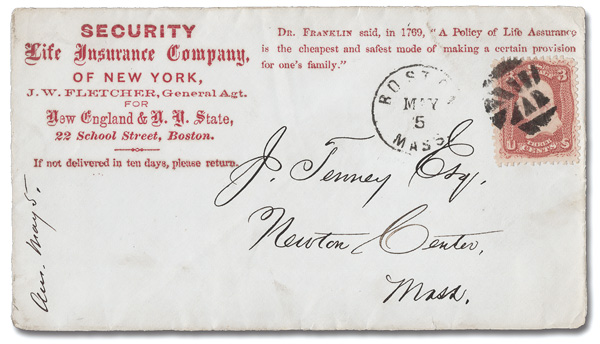 SECURITY
Life Insurance Company,
OF NEW YORK,
J. W. FLETCHER, General Agt.
FOR
New England & N. Y. State,
22 School Street, Boston.
If not delivered in ten days, please return.
DR. FRANKLIN said, in 1769, "A Policy of Life Assurance
is the cheapest and safest mode of making a certain provision
for one's family."
BOSTON
MAY
5
MASS.
3
U THREE CENTS S
J. Tenney Esq.
Newton Center,
Mass.
May 5.